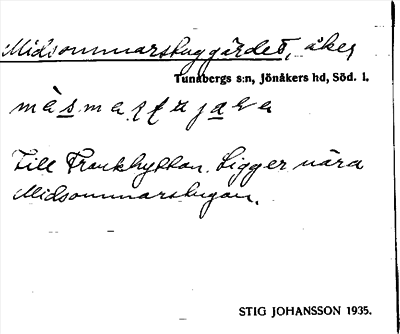 Midsommarstuggärdet, åker
Tunabergs s:n, Jönåkers hd, Söd. l.
Till Frankhyttan. Ligger nära
Midsommarstugan.
STIG JOHANSSON 1935.